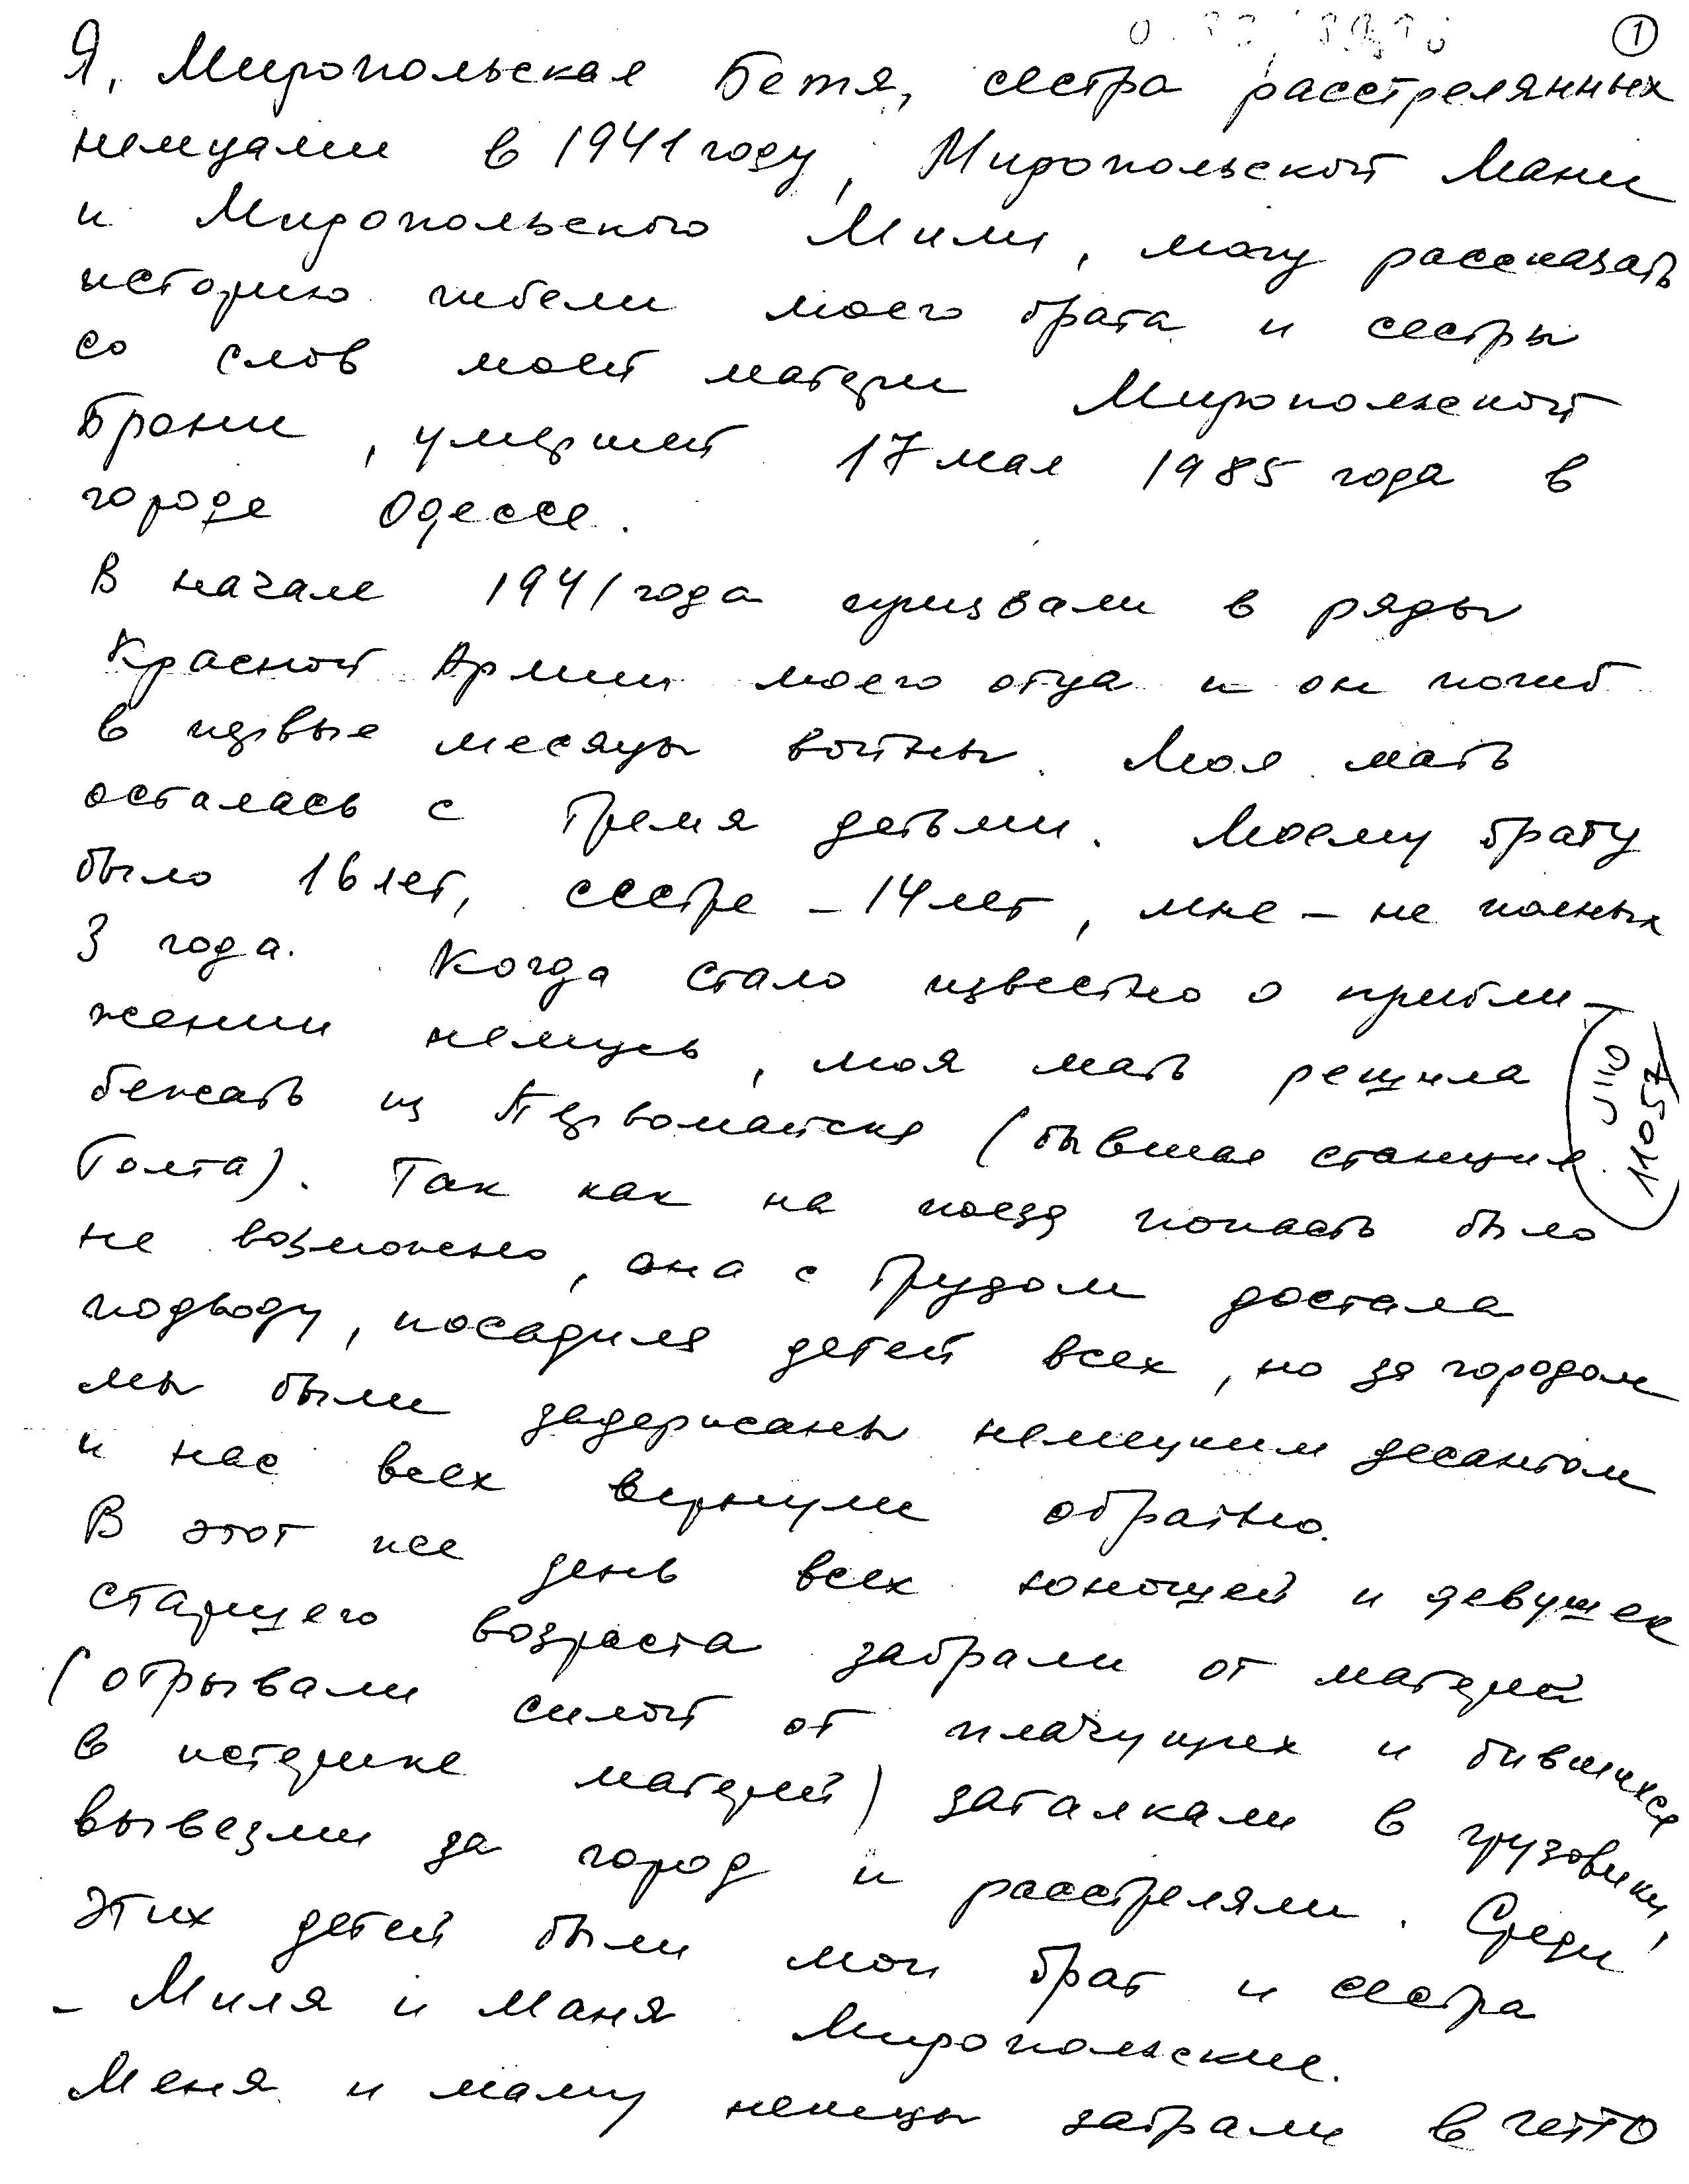 1
Я, Миропольская Бетя, сестра расстрелянных
немцами в 1941 году, Миропольской Мани
и Миропольского Мили, могу рассказать
историю гибели моего брата и сестры
со слов моей матери Миропольской
Брони, умершей 17 мая 1985 года в
городе Одессе.
В начале 1941 года призвали в ряды
Красной Армии моего отца и он погиб
в первые месяцы войны. Моя мать
осталась с тремя детьми. Моему брату
было 16 лет, сестре – 14 лет, мне – не полных
3 года. Когда стало известно о прибли-
жении немцев, моя мать решила
бежать из Первомайска (бывшая станция
Голта). Так как на поезд попасть было
не возможно, она с трудом достала
подводу, посадила детей всех, но за городом
мы были задержаны немецким десантом
и нас всех вернули обратно.
В этот же день всех юношей и девушек
старшего возраста забрали от матерей
(отрывали силой от плачущих и бившихся
в истерике матерей) заталкали в грузовики,
вывезли за город и расстреляли. Среди
этих детей были мои брат и сестра
– Миля и Маня Миропольские.
Меня и маму немцы забрали в гетто
11057